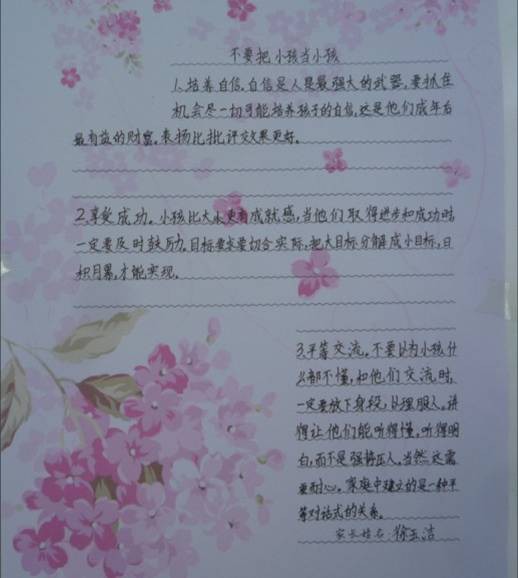 不要把小孩当小孩
1、培养自信。自信是人是最强大的武器,要抓住
机会尽一切可能培养孩子的自信,这是他们成年后
最有益的财富。表扬比批评效果更好。
2、享受成功。小孩比大人更有成就感,当他们取得进步和成功时
一定要及时鼓励。目标要求要切合实际,把大目标分解成小目标,日
积月累,才能实现。
3、平等交流。不要以为小孩什
么都不懂,和他们交流时,
一定要放下身段,以理服人。讲
得让他们能听得懂,听得明
白,而不是强势压人。当然这需
要耐心。家庭中建立的是一种平
等对话式的关系。
家长姓名:徐玉洁